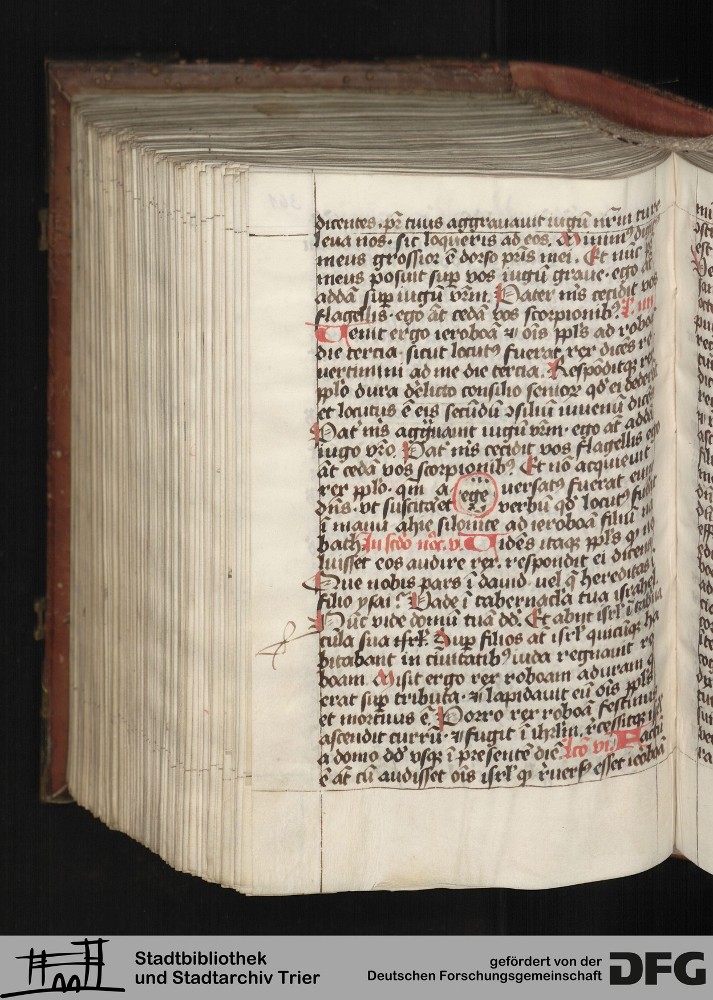 dicentes. pr̄ tuus aggravauit iugū nr̄m tu re
leua nos. sic loqueris ad eos. Minim⁹ digit⁹
meus grossior ē dorso pr̄is mei. Et nūc pr̄
meus posuit sup vos iugū graue. ego āt
addā sup iugū vr̄m. Pater m̄s cecidit vos
flagellis. ego āt cedā vos scorpionib⁹.
Venit ergo ieroboā ⁊ oīs ppl̄s ad roboā
die tercia. sicut locut⁹ fuerat rex dicēs re
uertimini ad me die tercia. Respōditq̄ rex
pplō dura dēlicto consilio senioꝝ qd̄ ei dederāt
et locutus ē eis secūdū ɔsiliū iuuenū dicēs
Pat̄ m̄s aggͣuauit iugū vr̄m. ego āt addā
iugo vr̄o. Pat̄ m̄s cecidit vos flagellis ego
āt cedā vos scorpionib⁹. Et nō acquieuit
rex pplō. qm̄ a ege uersat⁹ fuerat eum
dn̄s. vt suscitaret verbū qd̄ locut⁹ fuit
ī manu ahie silonite ad ieroboā filiū na
bath. Vidēs itaqꝫ ppl̄s qꝫ no
luisset eos audire rex. respondit ei dicens
Que nobis pars ī dauid. vel q̄ hereditas ī
filio ysai? Vade ī tabernacl̄a tua israhel.
Nūc vide domū tuā dd̄. Et abijt isrl̄ ī tab̄na
cula sua isrl̄. Sup filios āt isrl̄ quicūqꝫ ha
bitabant in ciuitatib⁹ iuda regnauit ro
boam. Misit ergo rex roboam aduram q̄
erat sup tributa. ⁊ lapidauit eū oīs ppl̄s
et mortuus ē. Porro rex roboā festinus
ascendit currū. ⁊ fugit ī ihrl̄m. r̄cessitqꝫ isrl̄
a domo dd̄ vsqꝫ ī presentē diē. Lc̄o vi. Factū
ē āt cū audisset oīs isrl̄ qꝫ r̄uers⁹ esset ieroboā
Stadtbibliothek
und Stadtarchiv Trier
gefördert von der
Deutschen Forschungsgemeinschaft
DFG